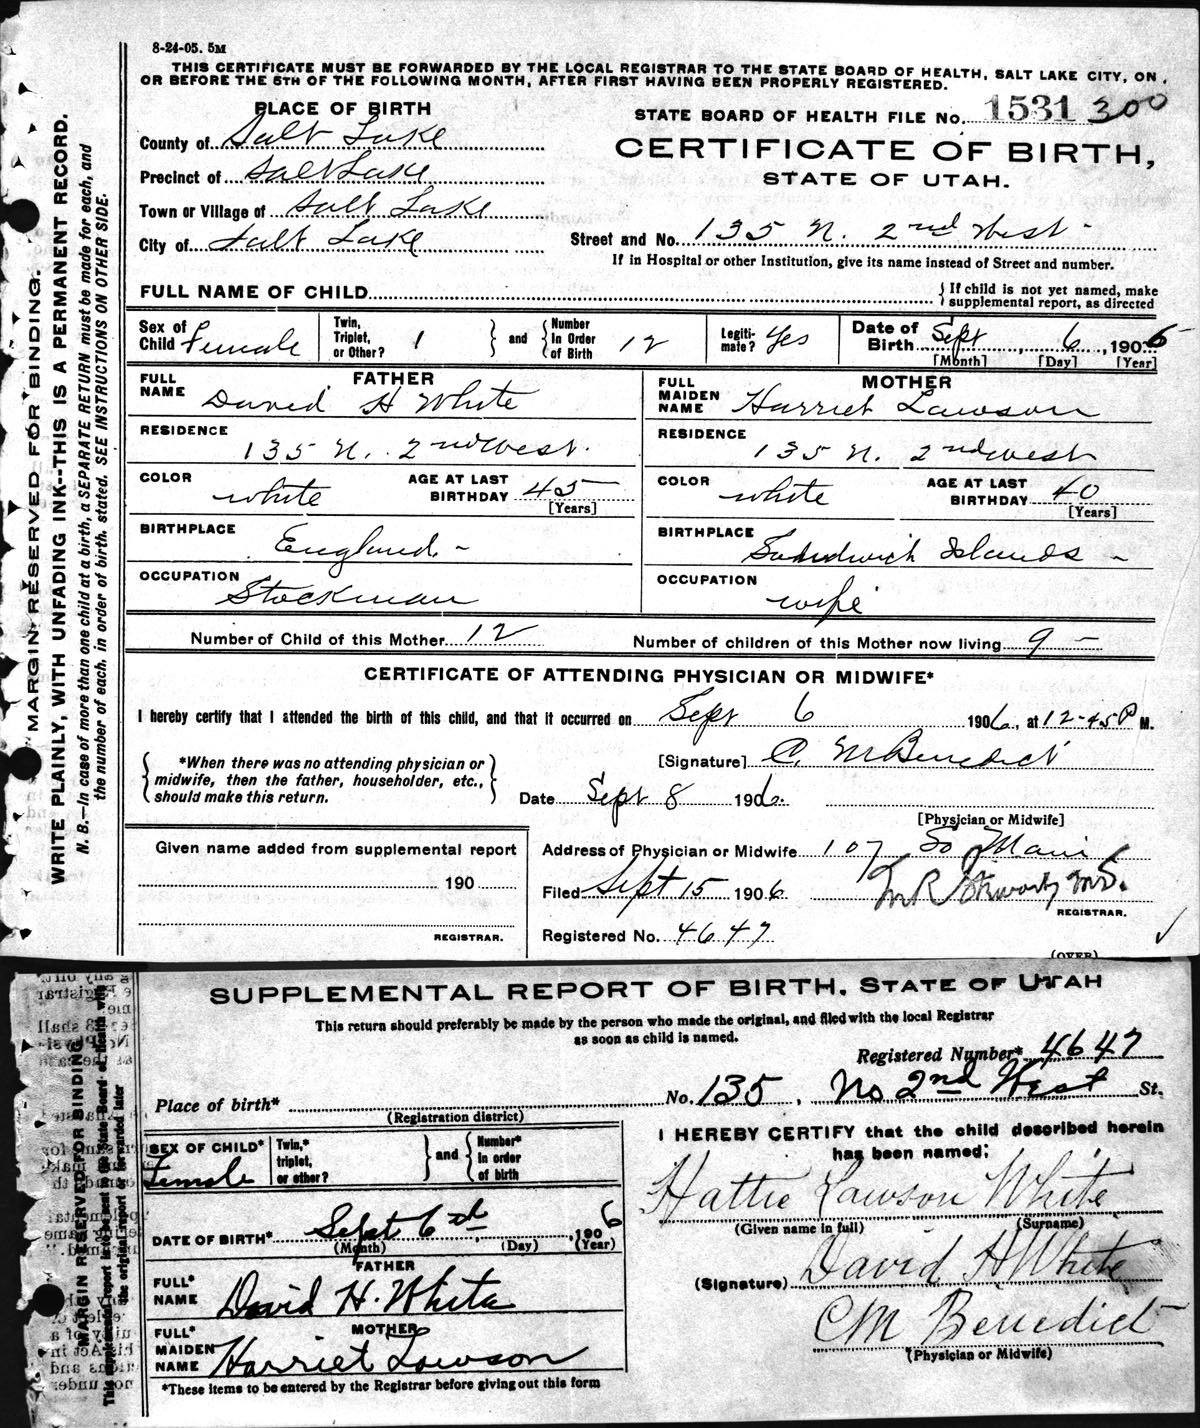 8-24-05. 5M
THIS CERTIFICATE MUST BE FORWARDED BY THE LOCAL REGISTRAR TO THE STATE BOARD OF HEALTH, SALT LAKE CITY, ON
OR BEFORE THE 5TH OF THE FOLLOWING MONTH, AFTER FIRST HAVING BEEN PROPERLY REGISTERED.
PLACE OF BIRTH
STATE BOARD OF HEALTH FILE No. 1531 300
County of Salt Lake
CERTIFICATE OF BIRTH,
Precinct of Salt Lake
STATE OF UTAH.
Town or Village of Salt Lake
City of Salt Lake
Street and No. 135 N. 2nd West
If in Hospital or other Institution, give its name instead of Street and number.
FULL NAME OF CHILD
{ If child is not yet named, make
supplemental report, as directed
Sex of Child Female
Twin, Triplet, or Other? 1
} and {
Number In Order of Birth 12
Legiti- mate? Yes
Date of Birth Sept 6, 1906
[Month] [Day] [Year]
FATHER
FULL NAME David H White
RESIDENCE 135 N. 2nd West.
COLOR white
AGE AT LAST BIRTHDAY 45
[Years]
BIRTHPLACE England -
OCCUPATION Stockman
MOTHER
FULL MAIDEN NAME Harriet Lawson
RESIDENCE 135 N. 2nd West
COLOR white
AGE AT LAST BIRTHDAY 40
[Years]
BIRTHPLACE Sandwich Islands -
OCCUPATION wife
Number of Child of this Mother 12
Number of children of this Mother now living 9 -
CERTIFICATE OF ATTENDING PHYSICIAN OR MIDWIFE*
I hereby certify that I attended the birth of this child, and that it occurred on Sept 6 1906, at 12-45 P M.
*When there was no attending physician or
midwife, then the father, householder, etc.,
should make this return.
[Signature] C. M Benedict
Date Sept 8 1906.
[Physician or Midwife]
Given name added from supplemental report
190
REGISTRAR.
Address of Physician or Midwife 107 So Main
Filed Sept 15 1906
REGISTRAR.
Registered No. 4647
(OVER)
MARGIN RESERVED FOR BINDING.
WRITE PLAINLY, WITH UNFADING INK--THIS IS A PERMANENT RECORD.
N. B.--In case of more than one child at a birth, a SEPARATE RETURN must be made for each, and
the number of each, in order of birth, stated. SEE INSTRUCTIONS ON OTHER SIDE.
SUPPLEMENTAL REPORT OF BIRTH. STATE OF UTAH
This return should preferably be made by the person who made the original, and filed with the local Registrar
as soon as child is named.
Registered Number* 4647
Place of birth*
(Registration district)
No. 135, No 2nd West St.
SEX OF CHILD* Female
Twin,* triplet, or other?
} and {
Number* In order of birth
DATE OF BIRTH* Sept 6th, 1906
(Month) (Day) (Year)
FATHER
FULL* NAME David H. White
MOTHER
FULL* MAIDEN NAME Harriet Lawson
*These items to be entered by the Registrar before giving out this form
I HEREBY CERTIFY that the child described herein
has been named:
Hattie Lawson White
(Given name in full) (Surname)
(Signature) David H White
CM Benedict
(Physician or Midwife)
MARGIN RESERVED FOR BINDING
This supplemental report is to be sent to the State Board of Health with
the original report or forwarded later